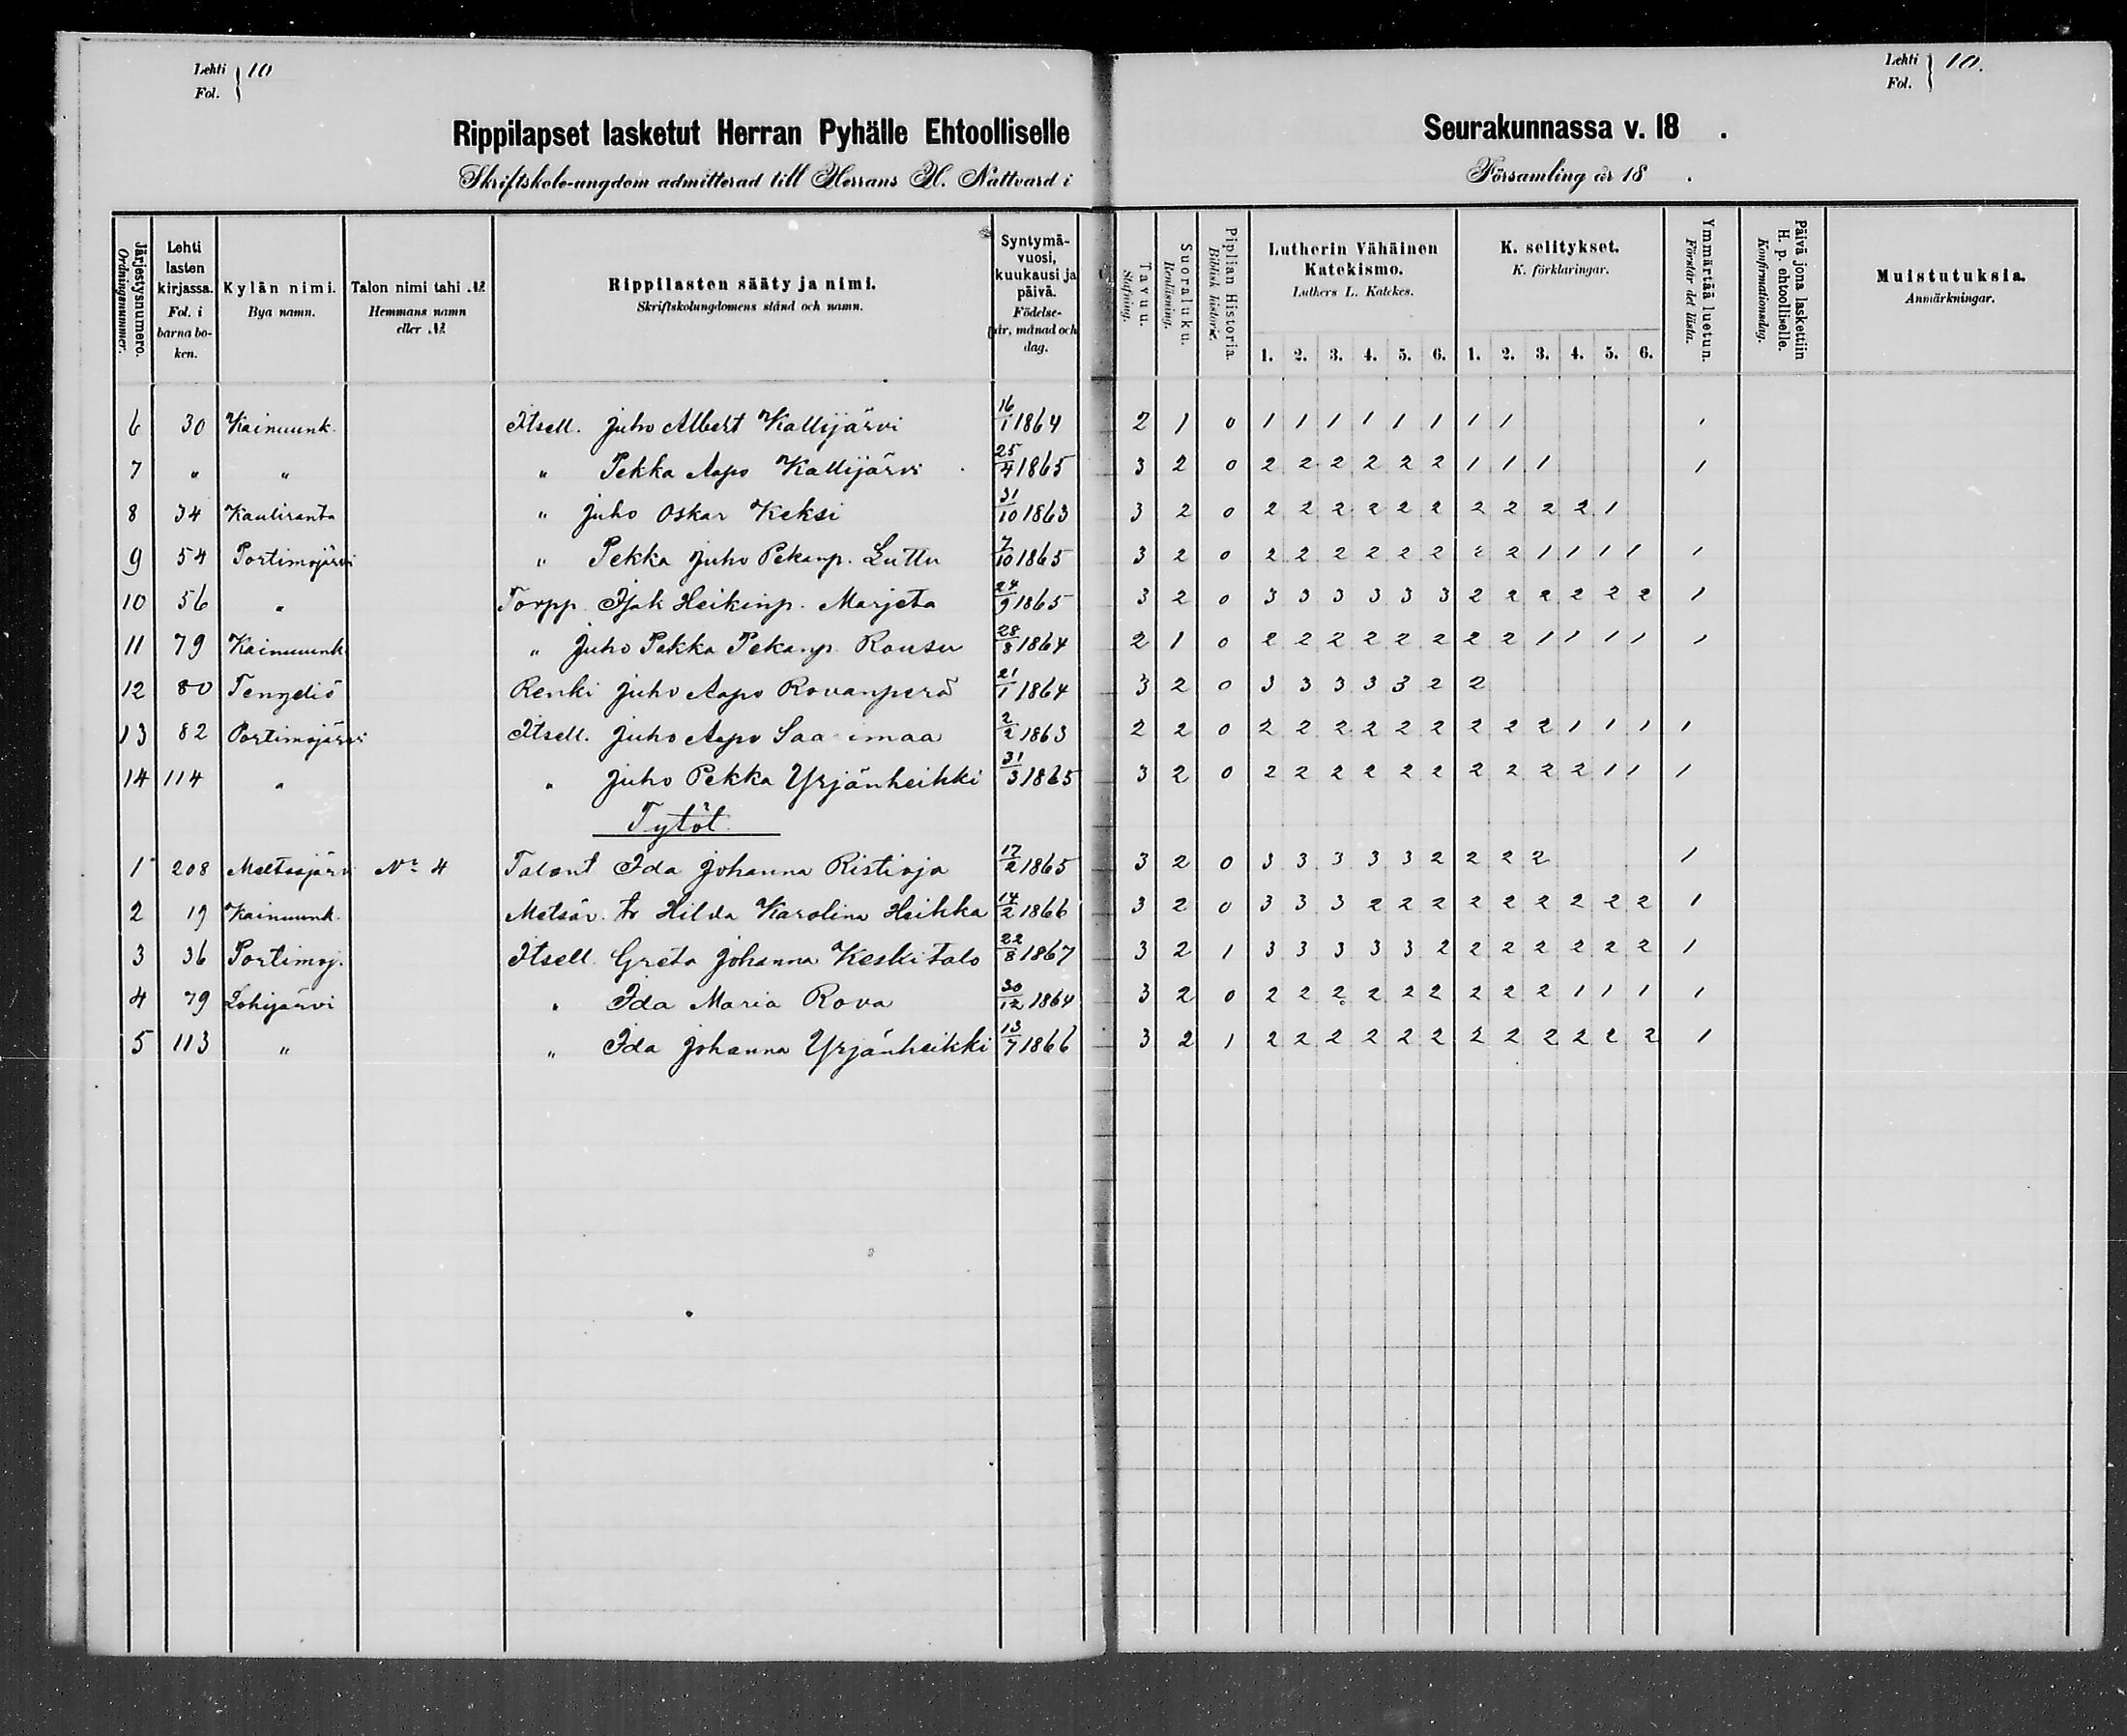 Lehti Fol. } 10
Rippilapset lasketut Herran Pyhälle Ehtoolliselle
Skriftskole-ungdom admitterad till Herrans H. Nattvard i
Järjestysnumero. Ordningsnummer.
Lehti lasten kirjassa. Fol. i barnaboken.
Kylän nimi. Bya namn.
Talon nimi tahi №. Hemmans namn eller №.
Rippilasten sääty ja nimi. Skriftskolungdomens stånd och namn.
Syntymävuosi, kuukausi ja päivä. Födelseår, månad och dag.
6 30 Kainuunk. Itsell. Juho Albert Kallijärvi 16/1 1864
7 " " " Pekka Aapo Kallijärvi 25/4 1865
8 34 Kauliranta " Juho Oskar Keksi 31/10 1863
9 54 Portimojärvi " Pekka Juho Pekanp. Luttu 7/10 1865
10 56 " Torpp. Isak Heikinp. Marjeta 24/9 1865
11 79 Kainuunk " Juho Pekka Pekanp. Rousu 28/8 1864
12 80 Tengeliö Renki Juho Aapo Rovanperä 21/1 1864
13 82 Portimojärvi Itsell. Juho Aapo Saa imaa 2/2 1863
14 114 " " Juho Pekka Yrjänheikki 31/3 1865
Tytöt.
1 208 Meltosjärvi No 4 Talont Ida Johanna Ristioja 17/2 1865
2 19 Kainuunk. Metsäv. tr Hilda Karolina Heikka 14/2 1866
3 36 Portimoj. Itsell. Greta Johanna Keskitalo 22/8 1867
4 79 Lohijärvi " Ida Maria Rova 30/12 1864
5 113 " " Ida Johanna Yrjänheikki 13/7 1866
Lehti Fol. } 10.
Seurakunnassa v. 18 .
Församling år 18 .
Tavuu. Stafning.
Suoraluku. Renläsning.
Piplian Historia. Biblisk historie.
Lutherin Vähäinen Katekismo. Luthers L. Katekes.
K. selitykset. K. förklaringar.
Ymmärtää luetun. Förstår det lästa.
Päivä jona laskettiin H. p. ehtoolliselle. Konfirmationsdag.
Muistutuksia. Anmärkningar.
1. 2. 3. 4. 5. 6. 1. 2. 3. 4. 5. 6.
2 1 0 1 1 1 1 1 1 1 1 1
3 2 0 2 2 2 2 2 2 1 1 1 1
3 2 0 2 2 2 2 2 2 2 2 2 2 1
3 2 0 2 2 2 2 2 2 2 2 1 1 1 1 1
3 2 0 3 3 3 3 3 3 2 2 2 2 2 2 1
2 1 0 2 2 2 2 2 2 2 2 1 1 1 1 1
3 2 0 3 3 3 3 3 2 2
2 2 0 2 2 2 2 2 2 2 2 2 1 1 1 1
3 2 0 2 2 2 2 2 2 2 2 2 2 1 1 1
3 2 0 3 3 3 3 3 2 2 2 2 1
3 2 0 3 3 3 2 2 2 2 2 2 2 2 2 1
3 2 1 3 3 3 3 3 2 2 2 2 2 2 2 1
3 2 0 2 2 2 2 2 2 2 2 2 1 1 1 1
3 2 1 2 2 2 2 2 2 2 2 2 2 2 2 1